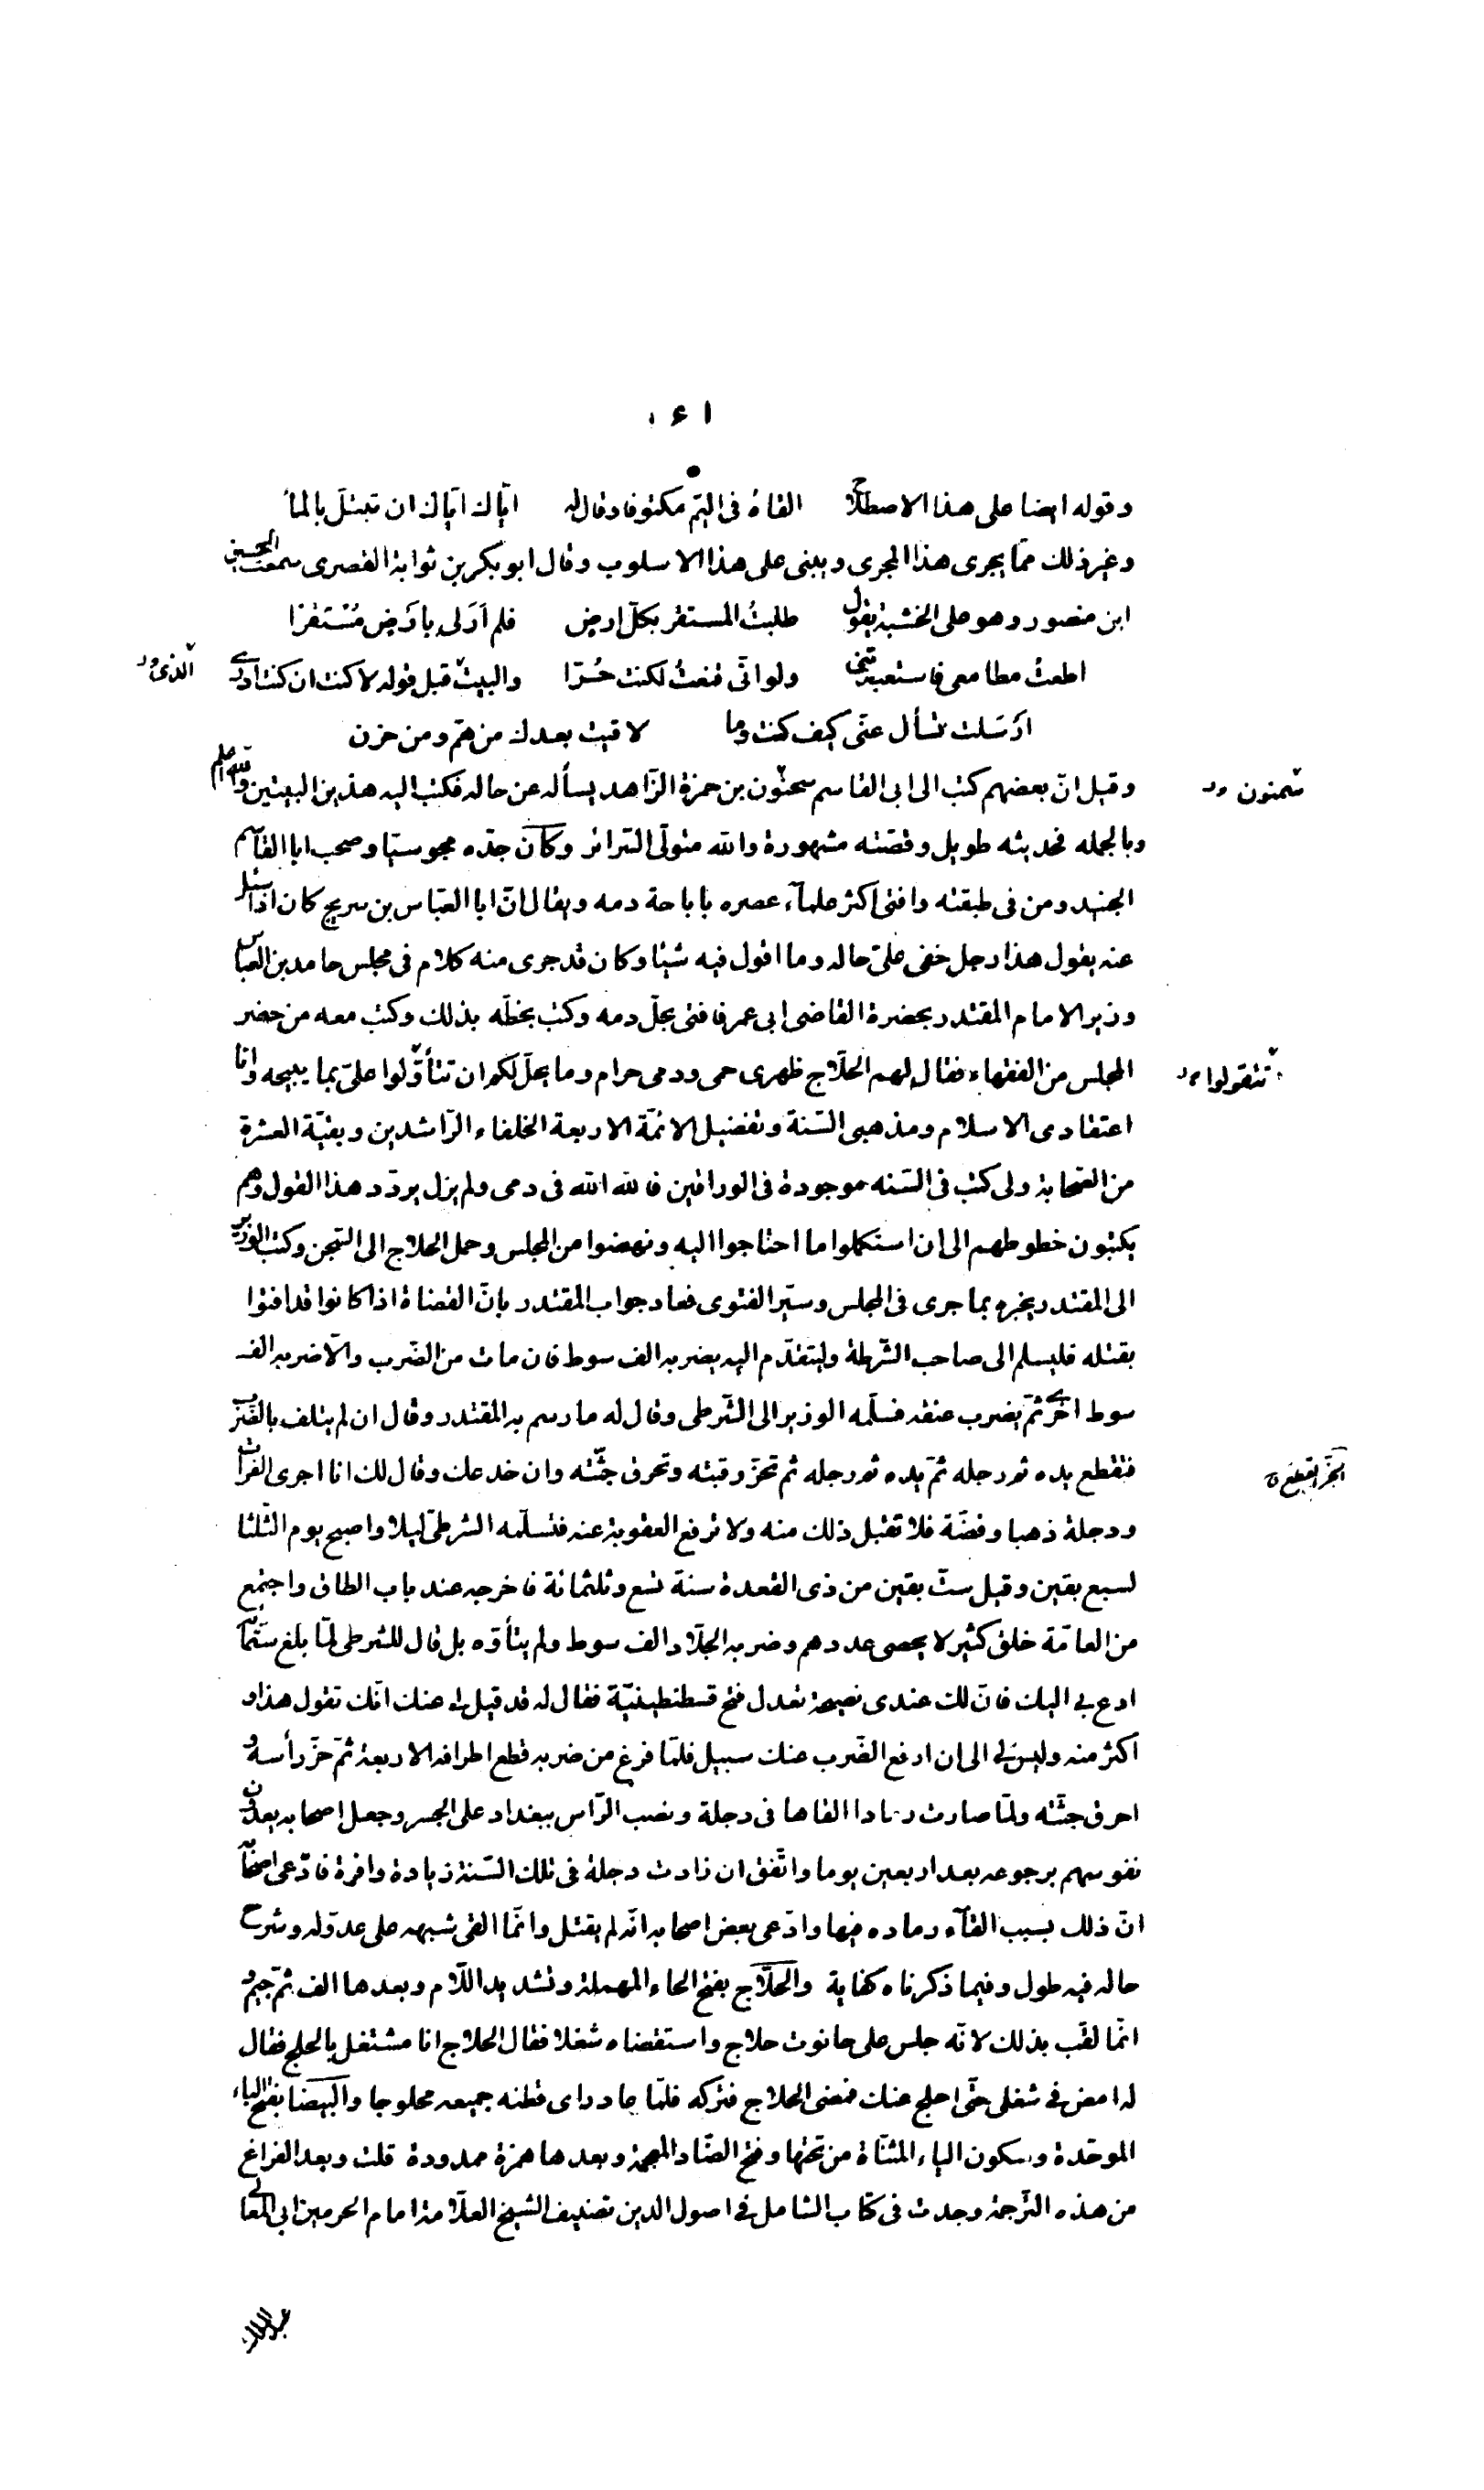 ١٤١
وقوله ايضا على هذا الاصطلاح القاهُ فى اليمّ مكتوفا وقال له ايّاك ايّاك ان تبتلّ بالماءِ
وغير ذلك ممّا يجرى هذا المجرى ويبنى على هذا الاسلوب وقال ابو بكر بن ثوابة القصرى سمعت الحسين
ابن منصور وهو على الخشبة يقول طلبتُ المستقر بكلّ ارض فلم اَرَ لى باَرضٍ مُسْتَقرّا
اطعتُ مطامعى فاستعبدتنى ولو انّى قنعتُ لكنت حُرّا والبيت قبل قوله لا كنت ان كنت ادرى
الّذى
ارسَلت تسأل عنّى كيف كنت وما لاقيت بعدك من همّ ومن حزن
وقيل انّ بعضهم كتب الى ابى القاسم سحنّون بن حمزة الزّاهد يسأله عن حاله فكتب اليه هذين البيتين والله اعلم
سمنون
وبالجمله فحديثه طويل وقصّته مشهورة والله متولّى السّرائر وكان جدّه مجوسيّا وصحب ابا القاسم
الجنيد ومن فى طبقته وافتى اكثر علمآء عصره باباحة دمه ويقال انّ ابا العبّاس بن سريج كان اذا سئل
عنه يقول هذا رجل خفى علىّ حاله وما اقول فيه شيئا وكان قد جرى منه كلام فى مجلس حامد بن العبّاس
وزير الامام المقتدر بحضرة القاضى ابى عمر فافتى بحلّ دمه وكتب بخطّه بذلك وكتب معه من حضر
المجلس من الفقهاء فقال لهم الحلّاج ظهرى حمى ودمى حرام وما يحلّ لكم ان تتأوّلوا علىّ بما يبيحه وانا
تتقولوا
اعتقادى الاسلام ومذهبى السّنة وتفضيل الائمّة الاربعة الخلفاء الرّاشدين وبقيّة العشرة
من الصّحابة ولى كتب فى السّنه موجودة فى الوراقين فالله الله فى دمى ولم يزل يردّد هذا القول وهم
يكتبون خطوطهم الى ان استكملوا ما احتاجوا اليه ونهضوا من المجلس وحمل الحلاج الى السّجن وكتب الوزير
الى المقتدر يخبره بما جرى فى المجلس وسيّر الفتوى فعاد جواب المقتدر بانّ القضاة اذا كانوا قد افتوا
بقتله فليسلم الى صاحب الشّرطة وليتقدّم اليه بضربه الف سوط فان مات من الضّرب والّا ضربه الف
سوط اخرى ثمّ يضرب عنقه فسلّمه الوزير الى الشّرطى وقال له ما رسم به المقتدر وقال ان لم يتلف بالضّرب
فتقطع يده ثم رجله ثمّ يده ثم رجله ثم تحزّ رقبته وتحرق جثّته وان خدعك وقال لك انا اجرى الفرات
الحزّ القطع
ودجلة ذهبا وفضّة فلا تقبل ذلك منه ولا ترفع العقوبة عنه فتسلّمه الشرطىّ ليلا واصبح يوم الثّلثا
لسبع بقين وقيل ستّ بقين من ذى القعدة سنة تسع وثلثمائة فاخرجه عند باب الطاق واجتمع
من العامّة خلق كثير لا يحصى عددهم وضربه الجلّاد الف سوط ولم يتأوّه بل قال للشرطى لمّا بلغ ستّمائة
ادع بى اليك فانّ لك عندى نصيحة تعدل فتح قسطنطينيّة فقال له قد قيل لى عنك انّك تقول هذا و
اكثر منه وليس لى الى ان ارفع الضّرب عنك سبيل فلمّا فرغ من ضربه قطع اطرافه الاربعة ثمّ حزّ رأسه و
احرق جثّته ولمّا صارت رمادا القاها فى دجلة ونصب الرّاس ببغداد على الجسر وجعل اصحابه يعدون
نفوسهم برجوعه بعد اربعين يوما واتّفق ان زادت دجلة فى تلك السّنة زيادة وافرة فادّعى اصحابه
انّ ذلك بسبب القآء رماده فيها وادّعى بعض اصحابه انّه لم يقتل وانّما القى شبهه على عدوّ له وشرح
حاله فيه طول وفيما ذكرناه كفاية والحلّاج بفتح الحاء المهملة وتشديد اللّام وبعدها الف ثمّ جيم و
انّما لقّب بذلك لانّه جلس على حانوت حلاج واستقضاه شغلا فقال الحلاج انا مشتغل بالحلج فقال
له امض فى شغلى حتّى احلج عنك فمضى الحلاج فتركه فلمّا عاد راى قطنه جميعه محلوجا والبيضا بفتح الباء
الموحّدة وسكون الياء المثنّاة من تحتها وفتح الضّاد المعجمة وبعدها همزة ممدودة قلت وبعد الفراغ
من هذه التّرجمة وجدت فى كتاب الشامل فى اصول الدين تصنيف الشيخ العلّامة امام الحرمين ابى المعالى
عبد الملك